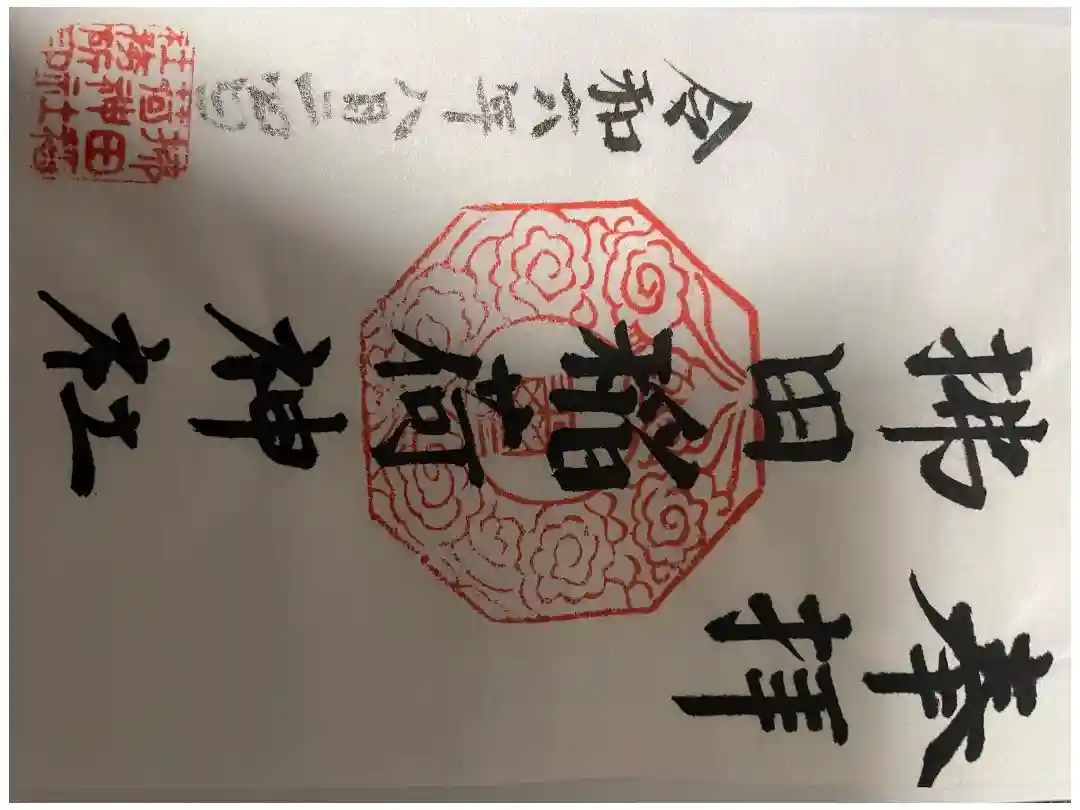 奉拝
拂田稲荷神社
令和六年八月二四日
拂田稲
荷神社
社務所印